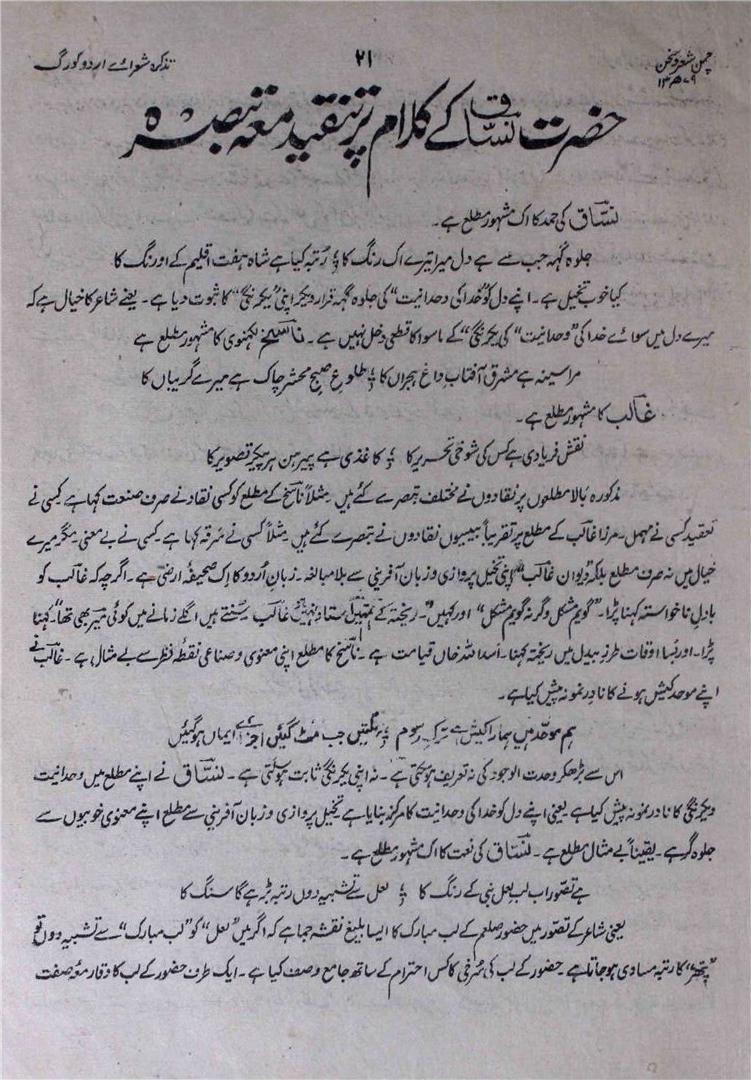 چمن شعر و سخن
۷۹-۱۳ھ
۲۱
تذکرہ شعرائے اردو کورگ
حضرت نسّاق کے کلام پر تنقید معہ تبصرہ
نسّاق کی حمد کا اک مشہور مطلع ہے۔
جلوہ گہہ جب سے ہے دل میرا تیرے اک رنگ کا ؛ رتبہ کیا ہے شاہ ہفت اقلیم کے اورنگ کا
کیا خوب تخیل ہے۔ اپنے دل کو "خدا کی وحدانیت" کی جلوہ گہہ قرار دیکر اپنی "یکرنگی" کا ثبوت دیا ہے۔ یعنے شاعر کا خیال ہے کہ
میرے دل میں سوائے خدا کی "وحدانیت" کی یکرنگی" کے ماسوا کا قطعی دخل نہیں ہے۔ ناسخؔ لکھنوی کا مشہور مطلع ہے
مرا سینہ ہے مشرق آفتابِ داغِ ہجراں کا ؛ طلوعِ صبح محشر چاک ہے میرے گریباں کا
غالب کا مشہور مطلع ہے۔
نقش فریادی ہے کس کی شوخیٔ تحریر کا ؛ کاغذی ہے پیرہن ہر پیکرِ تصویر کا
مذکورہ بالا مطلعوں پر نقادوں نے مختلف تبصرے کئے ہیں مثلاً ناسخ کے مطلع کو کسی نقاد نے صرف صنعت کہا ہے کسی نے
تعقید کسی نے مہمل۔ مرزا غالب کے مطلع پر تقریباً بیسیوں نقادوں نے تبصرے کئے ہیں مثلاً کسی نے سرقہ کہا ہے کسی نے بے معنی۔ مگر میرے
خیال میں نہ صرف مطلع بلکہ "دیوانِ غالب" اپنی تخیل پروازی و زبان آفرینی سے بلا مبالغہ۔ زبانِ اُردو کا اک صحیفۂ ارضی ہے۔ اگرچہ کہ غالب کو
بادلِ ناخواستہ کہنا پڑا۔ "گویم مشکل وگر نہ گویم مشکل" اور کہیں "۔ ریختہ کے تمہیں استاد نہیں ہو غالب کہتے ہیں اگلے زمانے میں کوئی میر بھی تھا"۔ کہنا
پڑا۔ اور بسا اوقات طرزِ بیدل میں ریختہ کہنا۔ اسد اللہ خاں قیامت ہے۔ ناسخ کا مطلع اپنی معنوی و صناعی نقطۂ نظر سے بے مثال ہے۔ غالب نے
اپنے موحد کیش ہونے کا نادر نمونہ پیش کیا ہے۔
ہم موحد ہیں ہمارا کیش ہے ترکِ رسوم ؛ ملتیں جب مٹ گئیں اجزائے ایماں ہو گئیں
اس سے بڑھکر وحدت الوجود کی نہ تعریف ہو سکتی ہے۔ نہ اپنی یکرنگی ثابت ہو سکتی ہے۔ نسّاق نے اپنے مطلع میں وحدانیت
و یکرنگی کا نادر نمونہ پیش کیا ہے یعنی اپنے دل کو خدا کی وحدانیت کا مرکز بنایا ہے تخیل پروازی و زبان آفرینی سے مطلع اپنے معنوی خوبیوں سے
جلوہ گر ہے۔ یقیناً بے مثال مطلع ہے۔ نسّاق کی نعت کا اک مشہور مطلع ہے۔
ہے تصور اب لبِ لعلِ نبی کے رنگ کا ؛ لعل سے تشبیہ دوں رتبہ بڑہے گا سنگ کا
یعنی شاعر کے تصور میں حضور صلعم کے لب مبارک کا ایسا بلیغ نقشہ جما ہے کہ اگر میں "لعل" کو "لب مبارک" سے تشبیہ دوں تو
"پتھر" کا رتبہ مساوی ہو جاتا ہے۔ حضور کے لب کی سُرخی کا کس احترام کے ساتھ جامع وصف کیا ہے۔ ایک طرف حضور کے لب کا وقار معہ صفت